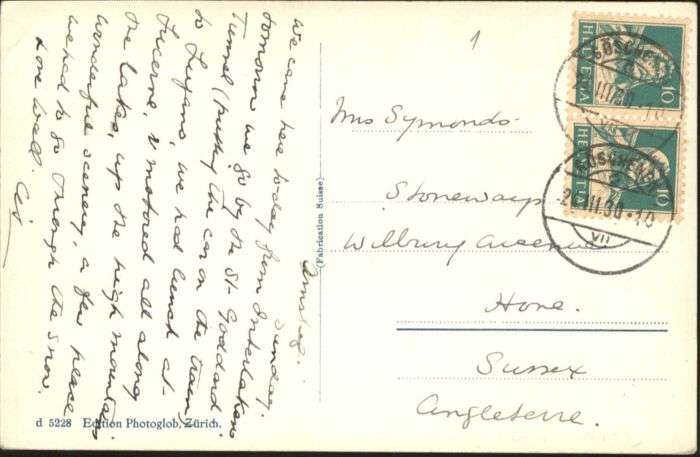 Amsteg.
Sunday.
We came here to-day from Interlaken
tomorrow we go by the St. Goddard
Tunnel (putting the car on the train)
to Lugano, we had lunch at
Lucerne, & motored all along
the lakes, up the high mountains
wonderful scenery, a few places
we had to go through the snow.
love to all.
1
Mrs Symonds.
Stoneways
Wilbury Avenue
Hove.
Sussex
Angleterre.
(Fabrication Suisse)
d 5228 Edition Photoglob, Zürich.
HELVETIA 10
HELVETIA 10
GÖSCHENEN
GÖSCHENEN
VII